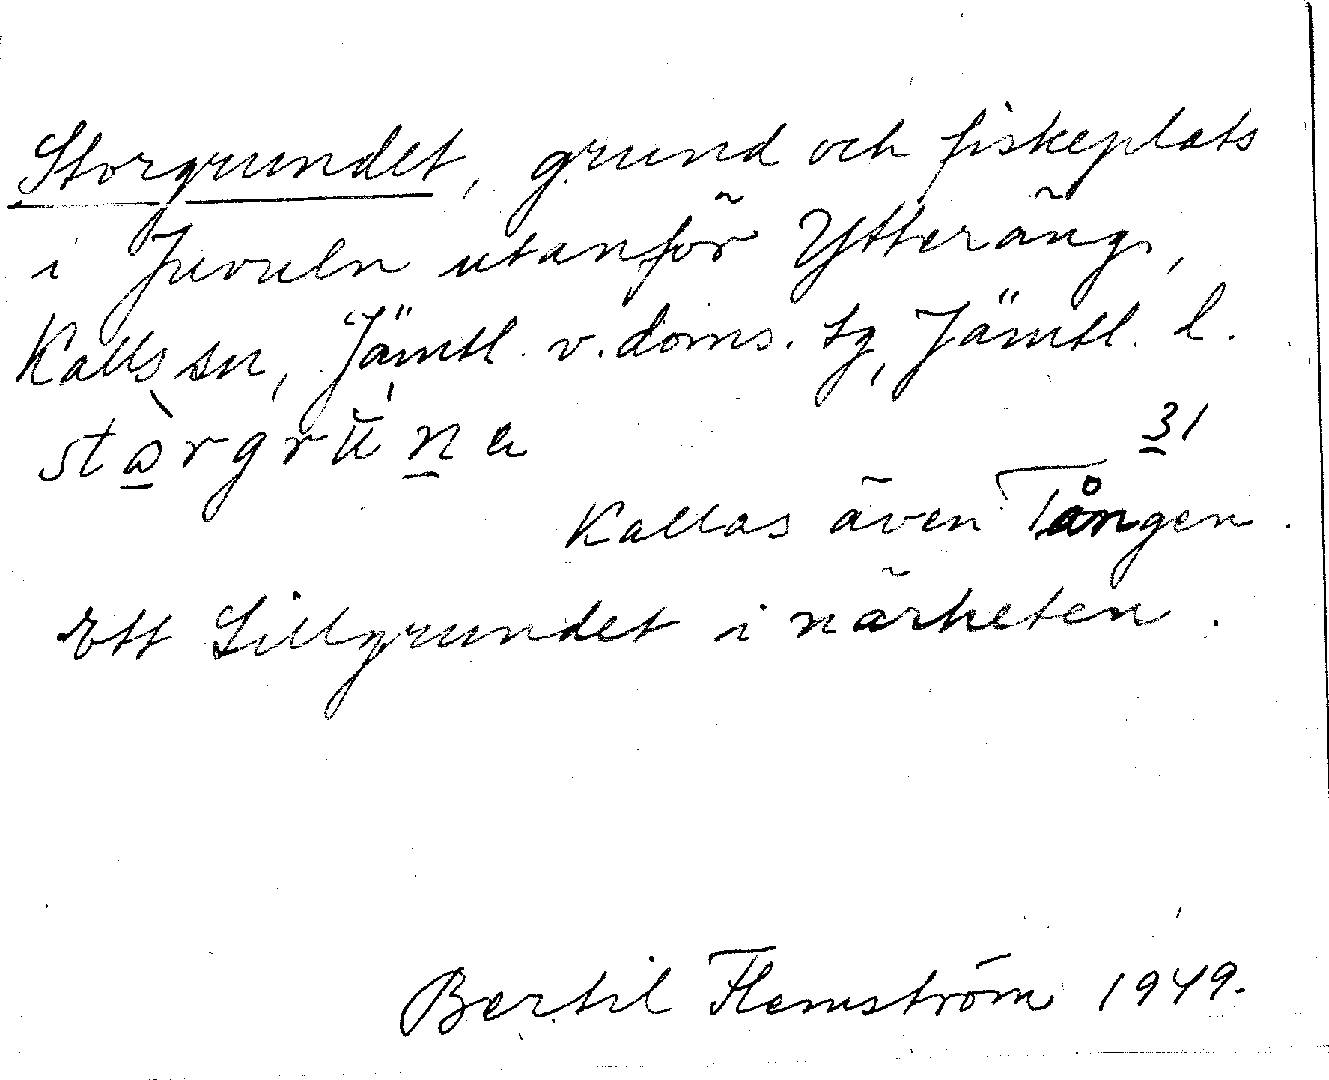 Storgrundet, grund och fiskeplats
i Juvuln utanför Ytteräng,
Kalls sn, Jämtl. v. doms. tg, Jämtl. l.
stòrgrŭna
31
Kallas även Tången.
Ett Lillgrundet i närheten.
Bertil Flemström 1949.